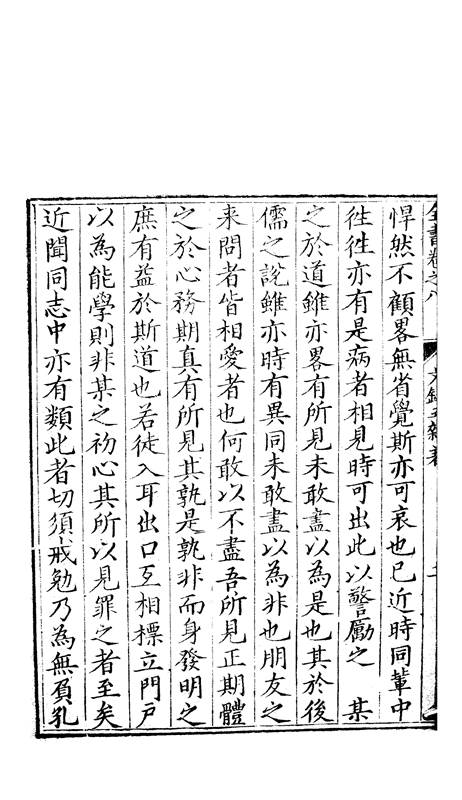 全書卷之八 文錄五雜著
悍然不顧畧無省覺斯亦可哀也已近時同輩中
徃徃亦有是病者相見時可出此以警勵之 某
之於道雖亦畧有所見未敢盡以為是也其於後
儒之說雖亦時有異同未敢盡以為非也朋友之
来問者皆相愛者也何敢以不盡吾所見正期體
之於心務期真有所見其孰是孰非而身發明之
庶有益於斯道也若徒入耳出口互相標立門戶
以為能學則非某之初心其所以見罪之者至矣
近聞同志中亦有類此者切須戒勉乃為無負孔